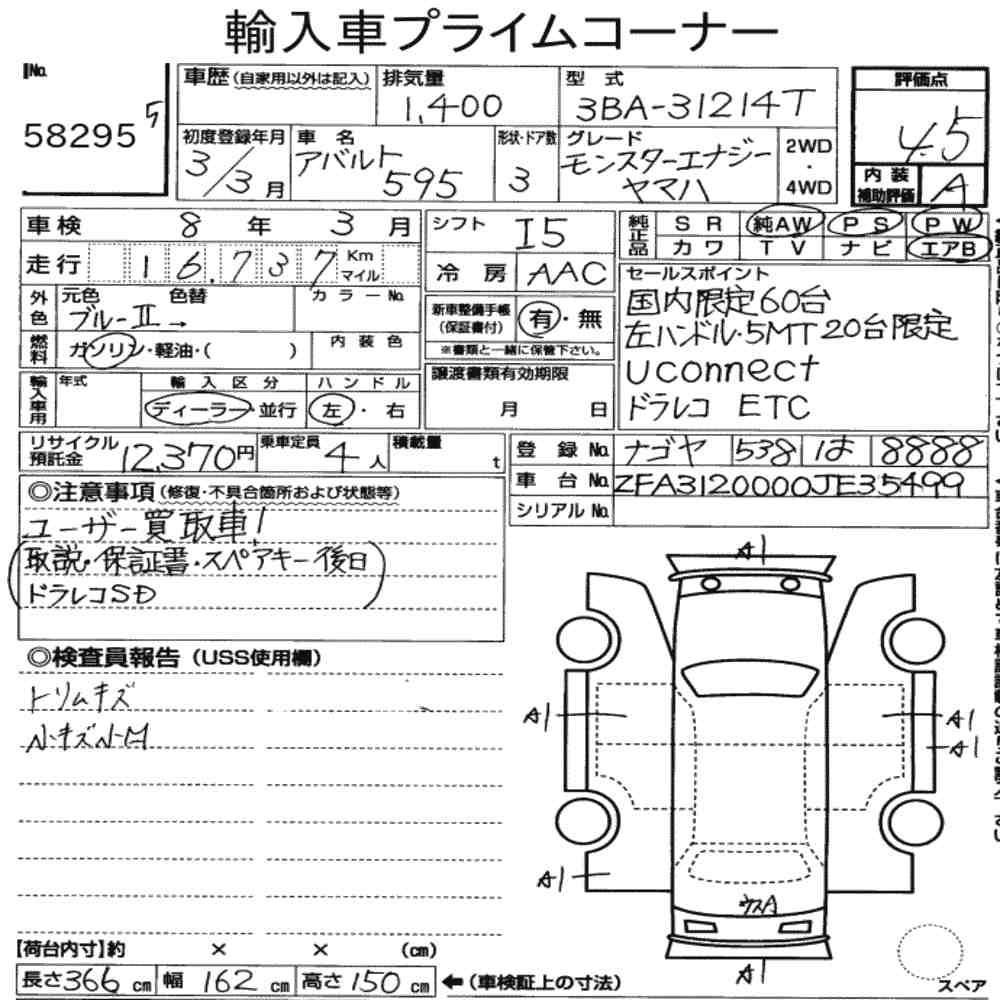 輸入車プライムコーナー
No.
58295 5
車歴 (自家用以外は記入)
排気量
1,400
型式
3BA-31214T
評価点
4.5
初度登録年月
3/3月
車名
アバルト
595
形状・ドア数
3
グレード
モンスターエナジー
ヤマハ
2WD
・
4WD
内装
補助評価
A
車検 8年 3月
走行 16,737 Km
マイル
シフト I5
冷房 AAC
純正品
SR 純AW PS PW
カワ TV ナビ エアB
外色
元色 色替
ブルーII→
カラーNo.
燃料
ガソリン・軽油・( )
内装色
新車整備手帳
(保証書付)
有・無
※書類と一緒に保管下さい。
セールスポイント
国内限定60台
左ハンドル・5MT 20台限定
uconnect
ドラレコ ETC
輸入車用
年式
輸入区分
ディーラー・並行
ハンドル
左・右
譲渡書類有効期限
月 日
リサイクル
預託金
12,370円
乗車定員
4人
積載量
t
登録No. ナゴヤ 538 は 8888
車台No. ZFA3120000JE35499
シリアルNo.
◎注意事項 (修復・不具合箇所および状態等)
ユーザー買取車!
取説・保証書・スペアキー後日
ドラレコSD
◎検査員報告 (USS使用欄)
トリムキズ
小キズ小凹
A1
A1
A1
A1
A1
ウスA
A1
スペア
【荷台内寸】約 × × (cm)
長さ366cm 幅162cm 高さ150cm ←(車検証上の寸法)